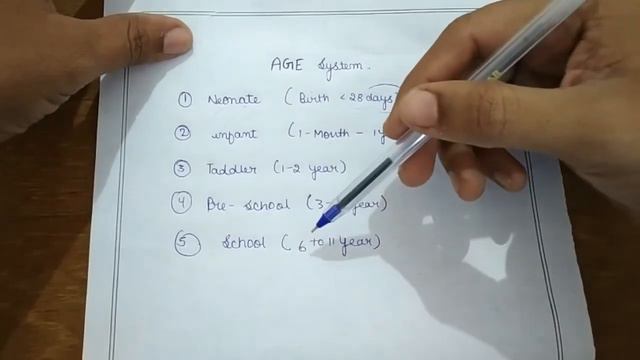 AGE System.
① Neonate ( Birth < 28 days
② infant ( 1-Mouth - 1 y
③ Taddler (1-2 year)
④ Pre-School (3- year)
⑤ School ( 6 to 11 year)